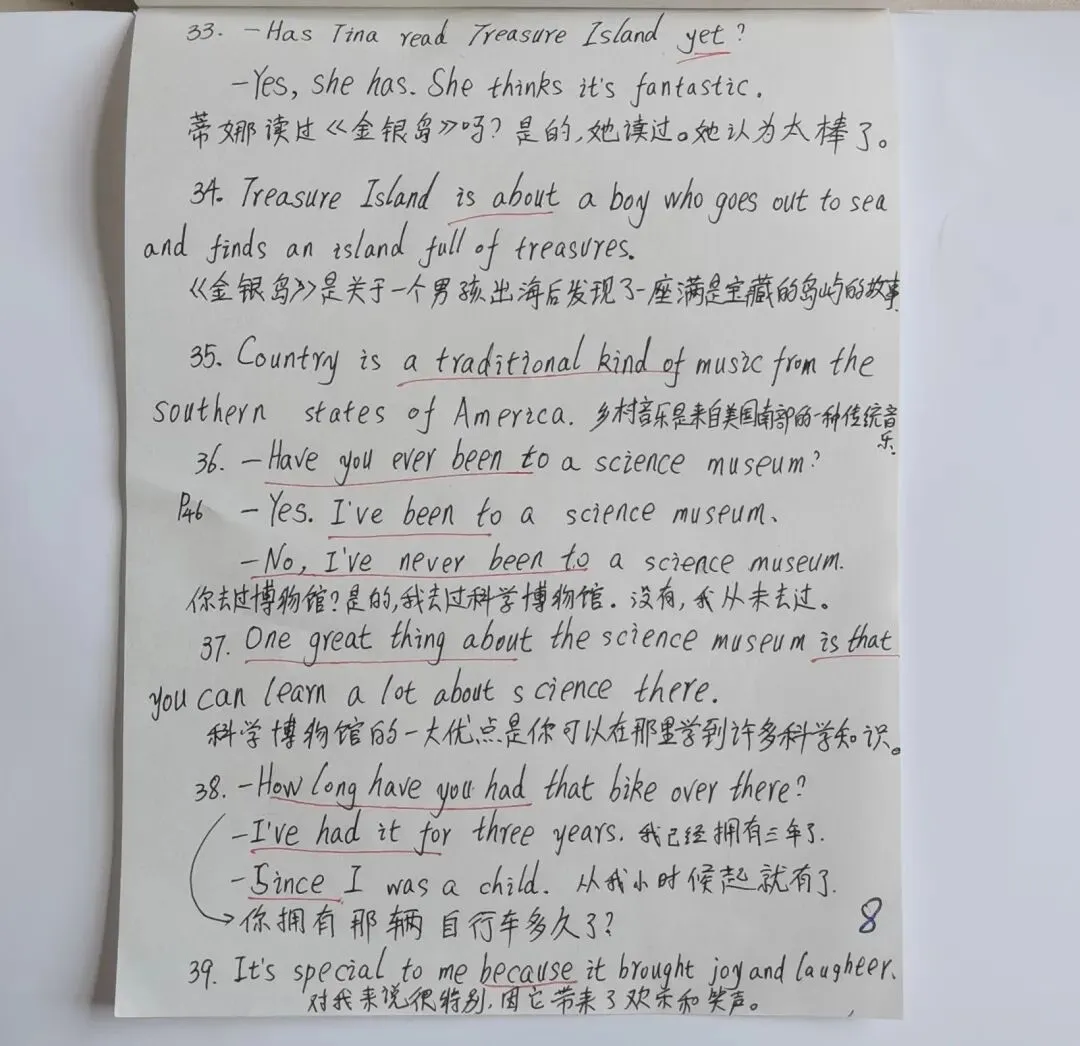 33. -Has Tina read Treasure Island yet?
-Yes, she has. She thinks it's fantastic.
蒂娜读过《金银岛》吗？是的，她读过。她认为太棒了。
34. Treasure Island is about a boy who goes out to sea
and finds an island full of treasures.
《金银岛》是关于一个男孩出海后发现了一座满是宝藏的岛屿的故事.
35. Country is a traditional kind of music from the
southern states of America. 乡村音乐是来自美国南部的一种传统音
乐.
36. -Have you ever been to a science museum?
P46 -Yes. I've been to a science museum.
-No, I've never been to a science museum.
你去过博物馆？是的,我去过科学博物馆. 没有,我从未去过。
37. One great thing about the science museum is that
you can learn a lot about science there.
科学博物馆的一大优点是你可以在那里学到许多科学知识。
38. -How long have you had that bike over there?
-I've had it for three years. 我已经拥有三年了.
-Since I was a child. 从我小时候起就有了.
你拥有那辆自行车多久了?
8
39. It's special to me because it brought joy and laugheer.
对我来说很特别,因它带来了欢乐和笑声。